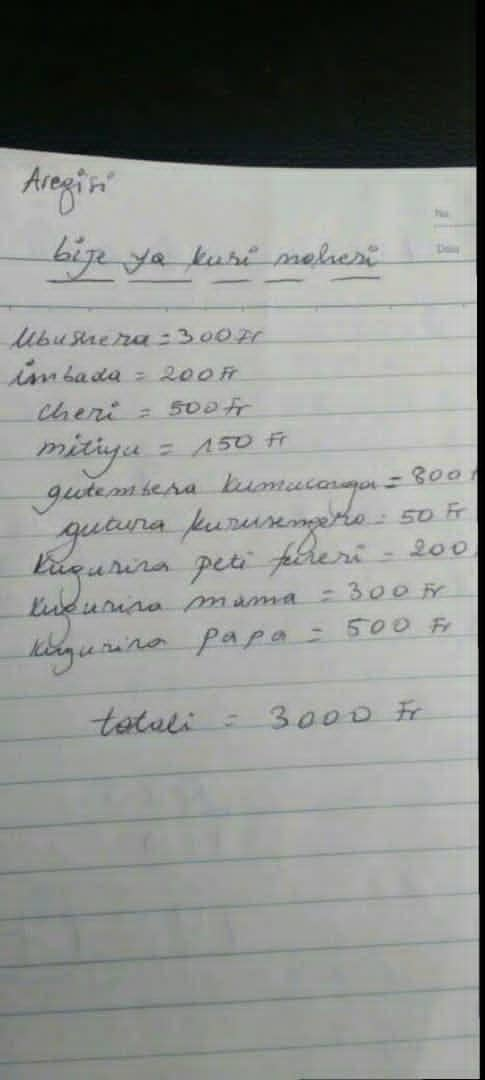 Aregisi
No.
Date
bije ya kuri noheri
Ubushera = 300 Fr
imbada = 200 Fr
cheri = 500 Fr
mitiyu = 150 Fr
gutembera kumucanga = 800 F
gutura kurusengero = 50 Fr
kugurira peti fureri = 200
kugurira mama = 300 Fr
kugurira papa = 500 Fr
totali = 3000 Fr